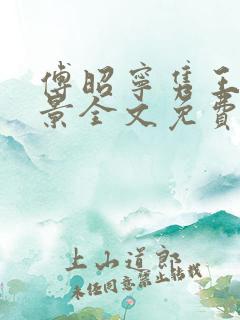 傅昭宁隽王
景全文免费
上山道郎
未经同意禁止转载